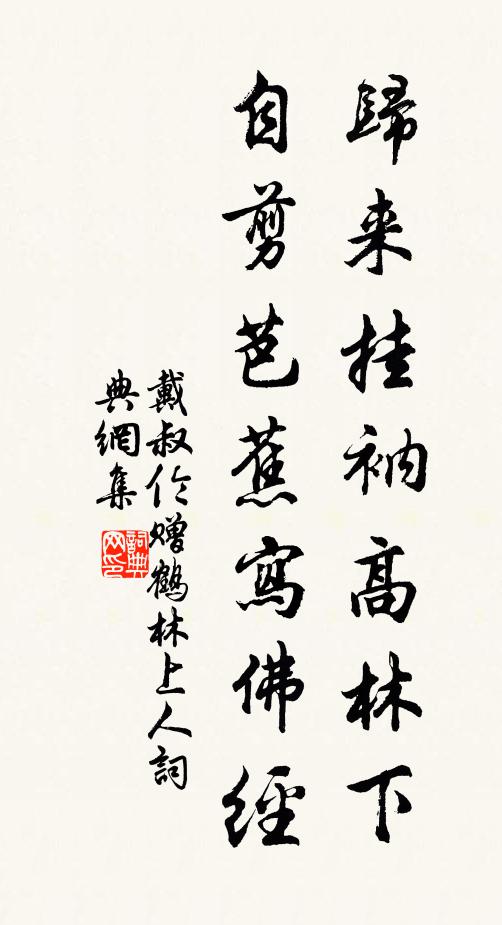 歸来挂衲高林下
自剪芭蕉寫佛經
戴叔伦赠鶴林上人詞
典網集
詞典
网印